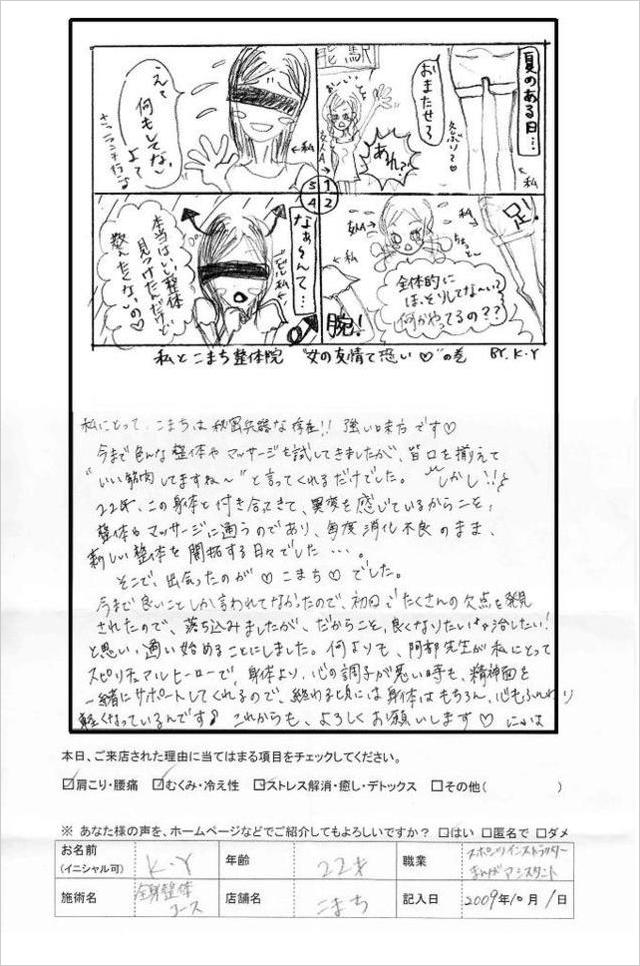 夏のある日…
おまたせ〜
久ぶり〜♡
←私
駅
おーい
友人A→
あれ?
①
②
④
⑤
足!
友人A→
私→
全体的に
ほっそりしてな〜い?
何かやってるの??
腕!
←私
なぁ〜んて…
本当はいい整体
見つけたんだけど
教えたくないの♡
えー
何もしてない
よぉ〜
←私
私とこまち整体院 "女の友情て恐い♡"の巻 BY.K.Y
私にとって、こまちは秘密兵器な存在!! 強い味方です♡
今まで色んな整体やマッサージを試してきましたが、皆口を揃えて
"いい筋肉してますね〜"と言ってくれるだけでした。しかし!!
22年、この身体と付き合ってきて、異変を感じているからこそ、
整体やマッサージに通うのであり、毎度消化不良のまま、
新しい整体を開拓する日々でした…。
そこで、出会ったのが♡こまち♡でした。
今まで良いことしか言われてなかったので、初回でたくさんの欠点を発見
されたので、落ち込みましたが、だからこそ、良くなりたい!治したい!
と思い、通い始めることにしました。何よりも、阿部先生が私にとって
スピリチュアルヒーローで、身体より、心の調子が悪い時も、精神面を
一緒にサポートしてくれるので、終わる頃には身体はもちろん、心もふんわり
軽くなっているんです♪ これからも、よろしくお願いします♡
本日、ご来店された理由に当てはまる項目をチェックしてください。
☑肩こり・腰痛 ☑むくみ・冷え性 ☑ストレス解消・癒し・デトックス □その他( )
※ あなた様の声を、ホームページなどでご紹介してもよろしいですか? □はい □匿名で □ダメ
お名前 (イニシャル可) K.Y 年齢 22才 職業 スポーツインストラクター まんがアシスタント
施術名 全身整体コース 店舗名 こまち 記入日 2009年10月1日